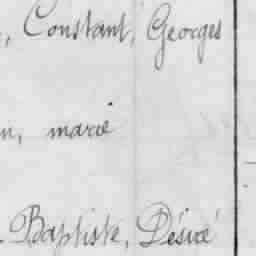 , Constant, Georges
n, marié
Baptiste, Désiré